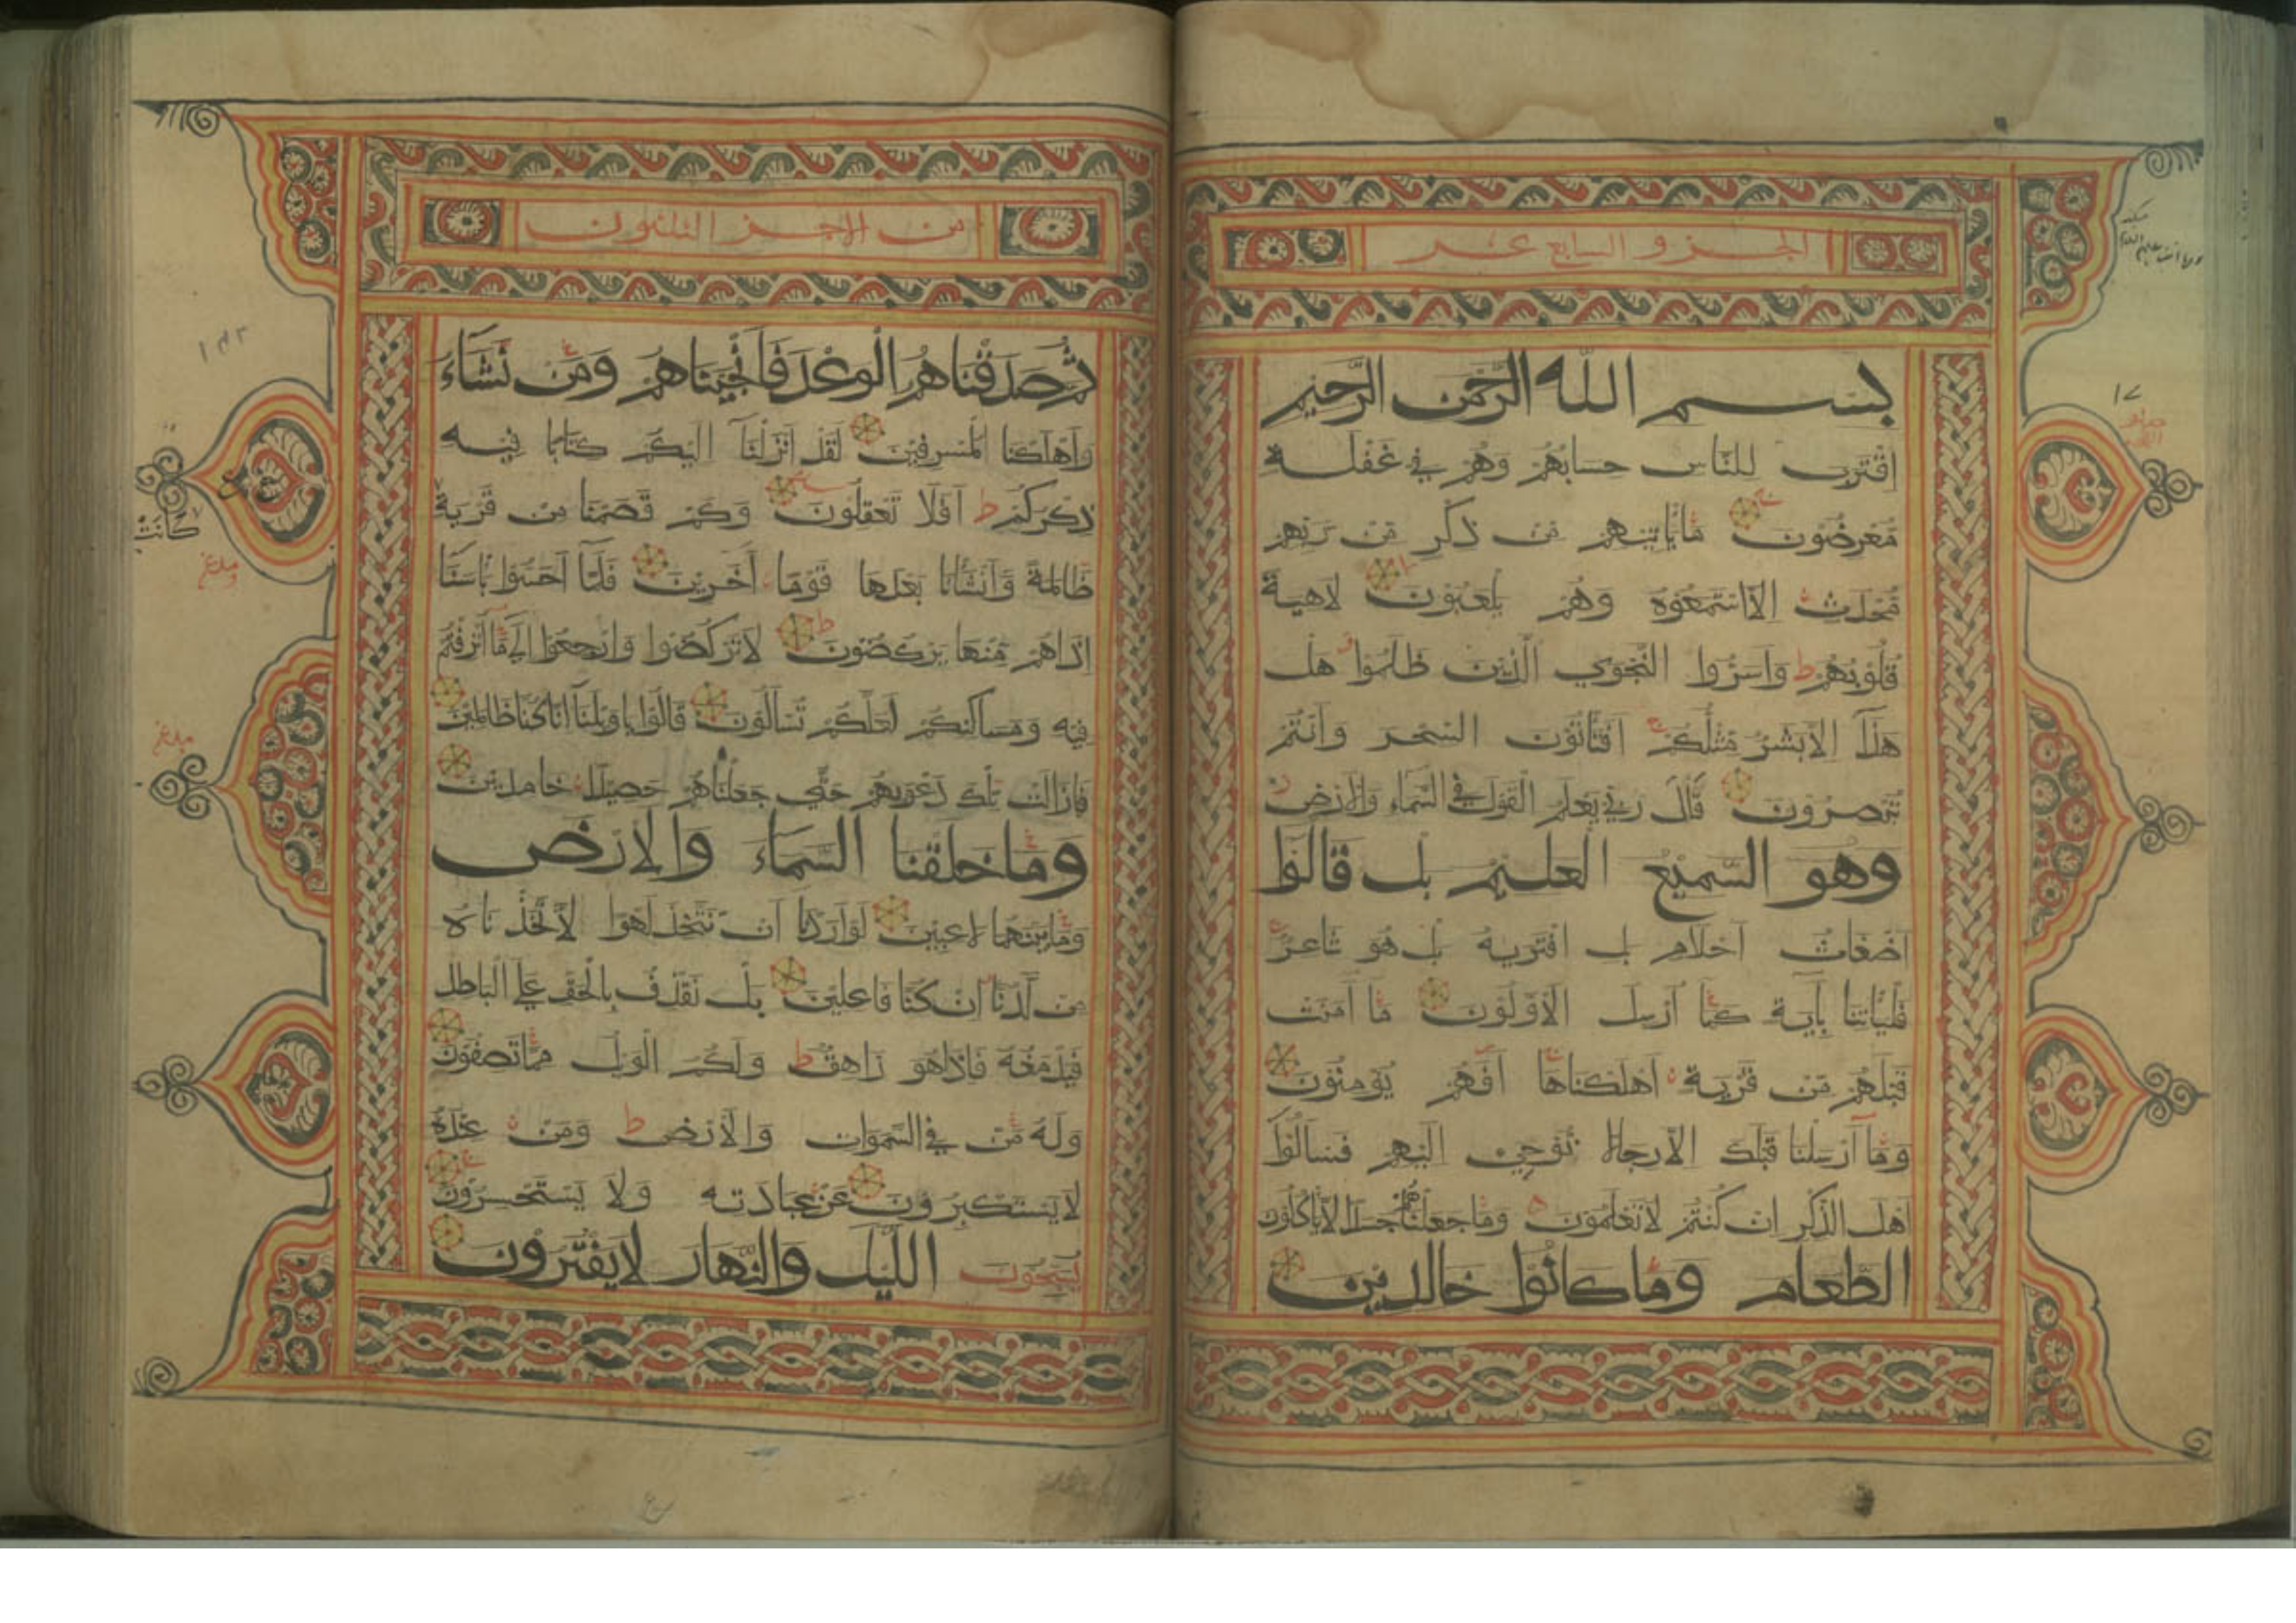 الجزو السابع عشر
بسم الله الرحمن الرحيم
اقترب للناس حسابهم وهم في غفلة
معرضون ما ياتيهم من ذكر من ربهم
محدث الا استمعوه وهم يلعبون لاهية
قلوبهم ط واسروا النجوي الذين ظلموا هل
هذا الا بشر مثلكم افتاتون السحر وانتم
تبصرون قال ربي يعلم القول في السماء والارض
وهو السميع العليم بل قالوا
اضغاث احلام بل افتريه بل هو شاعر
فلياتنا بآية كما ارسل الاولون ما آمنت
قبلهم من قرية اهلكناها افهم يومنون
وما ارسلنا قبلك الا رجالا نوحي اليهم فسالوا
اهل الذكر ان كنتم لا تعلمون وما جعلناهم جسدا لا ياكلون
الطعام وما كانوا خالدين
١٧
من الاجز الثلثون
ثم صدقناهم الوعد فانجيناهم ومن نشاء
واهلكنا المسرفين لقد انزلنا اليكم كتابا فيه
ذكركم ط افلا تعقلون وكم قصمنا من قرية
ظالمة وانشانا بعدها قوما اخرين فلما احسوا باسنا
اذا هم منها يركضون لا تركضوا وارجعوا الي ما اترفتم
فيه ومساكنكم لعلكم تسالون قالوا يا ويلنا انا كنا ظالمين
فما زالت تلك دعويهم حتي جعلناهم حصيدا خامدين
وما خلقنا السماء والارض
وما بينهما لاعبين لو اردنا ان نتخذ لهوا لاتخذناه
من لدنا ان كنا فاعلين بل نقذف بالحق علي الباطل
فيدمغه فاذا هو زاهق ط ولكم الويل مما تصفون
وله من في السموات والارض ط ومن عنده
لا يستكبرون عن عبادته ولا يستحسرون
يسبحون الليل والنهار لا يفترون
كانت